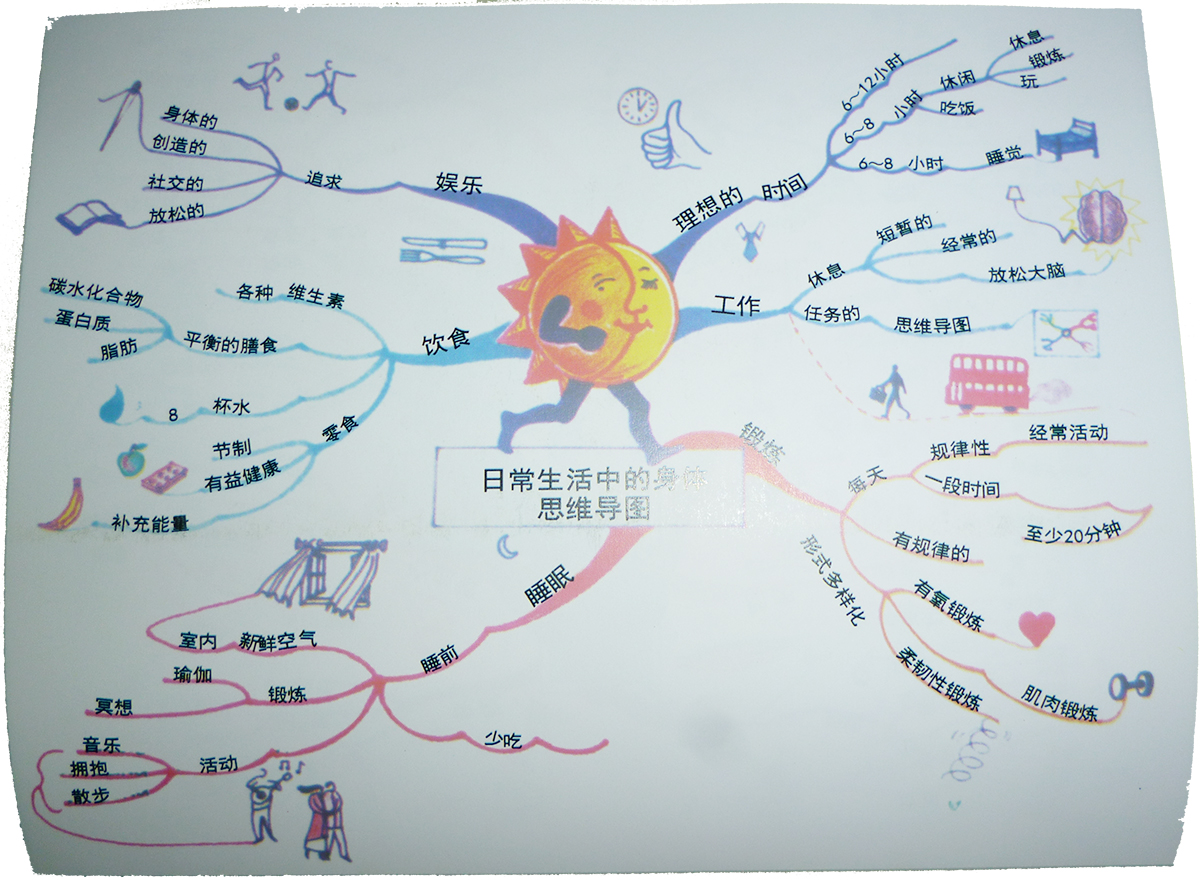 日常生活中的身体
思维导图
理想的 时间
6～12小时
6～8 小时
休闲
休息
锻炼
玩
吃饭
6～8 小时 睡觉
工作
休息
短暂的
经常的
放松大脑
任务的
思维导图
锻炼
每天
规律性
经常活动
一段时间
至少20分钟
有规律的
形式多样化
有氧锻炼
肌肉锻炼
柔韧性锻炼
睡眠
睡前
新鲜空气
室内
锻炼
瑜伽
冥想
活动
音乐
拥抱
散步
少吃
饮食
各种 维生素
平衡的膳食
碳水化合物
蛋白质
脂肪
8 杯水
零食
节制
有益健康
补充能量
娱乐
追求
身体的
创造的
社交的
放松的